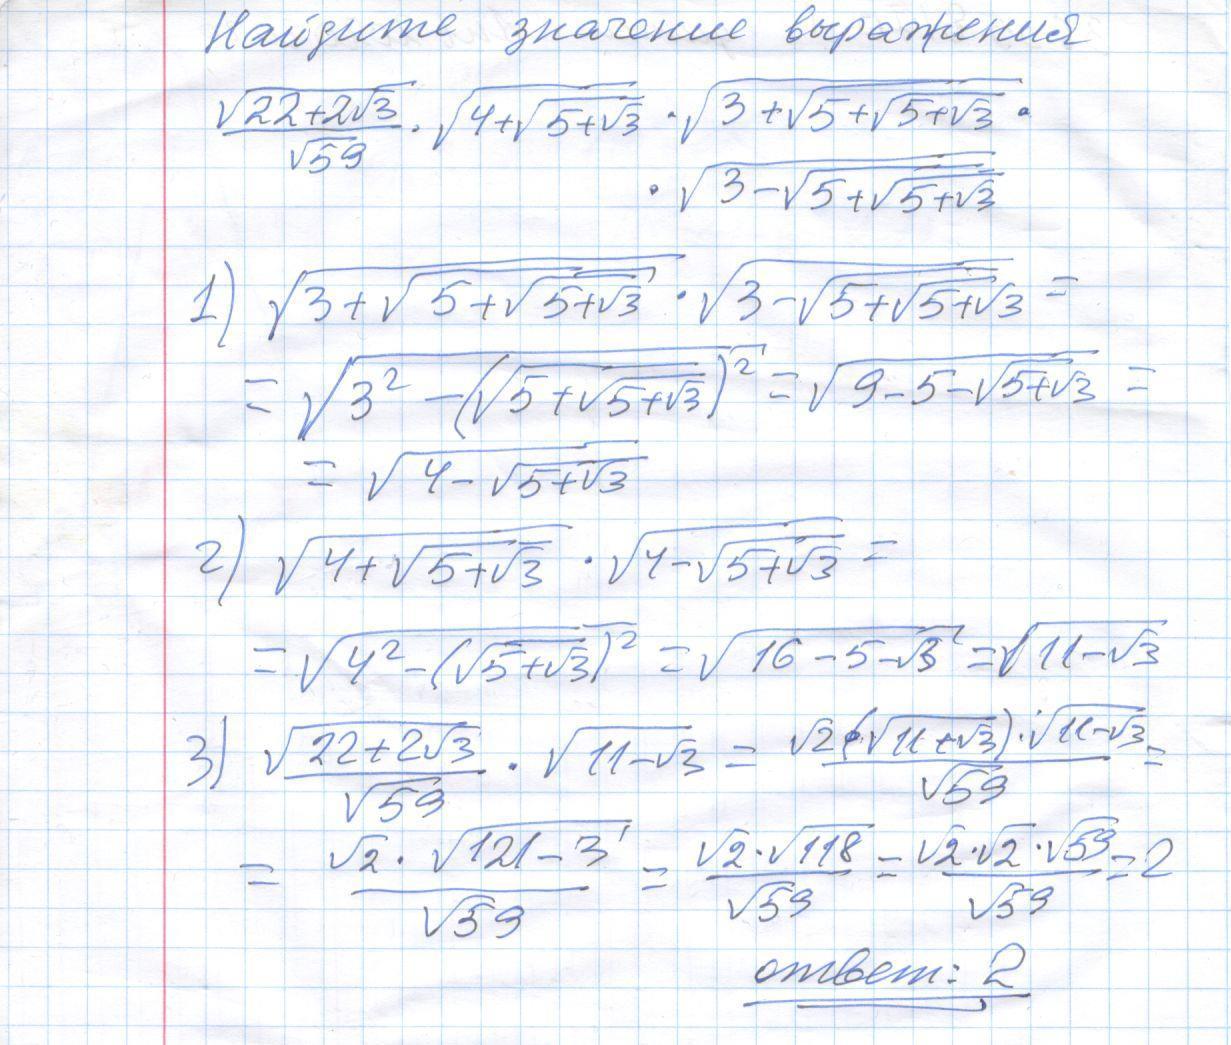 Найдите значение выражения
√(22+2√3)/√59 · √(4+√(5+√3)) · √(3+√(5+√(5+√3))) ·
· √(3-√(5+√(5+√3)))
1) √(3+√(5+√(5+√3))) · √(3-√(5+√(5+√3))) =
= √(3²-(√(5+√(5+√3)))²) = √(9-5-√(5+√3)) =
= √(4-√(5+√3))
2) √(4+√(5+√3)) · √(4-√(5+√3)) =
= √(4²-(√(5+√3))²) = √(16-5-√3) = √(11-√3)
3) √(22+2√3)/√59 · √(11-√3) = √2·(√(11+√3))·√(11-√3)/√59 =
= √2·√(121-3)/√59 = √2·√118/√59 = √2·√2·√59/√59 = 2
ответ: 2